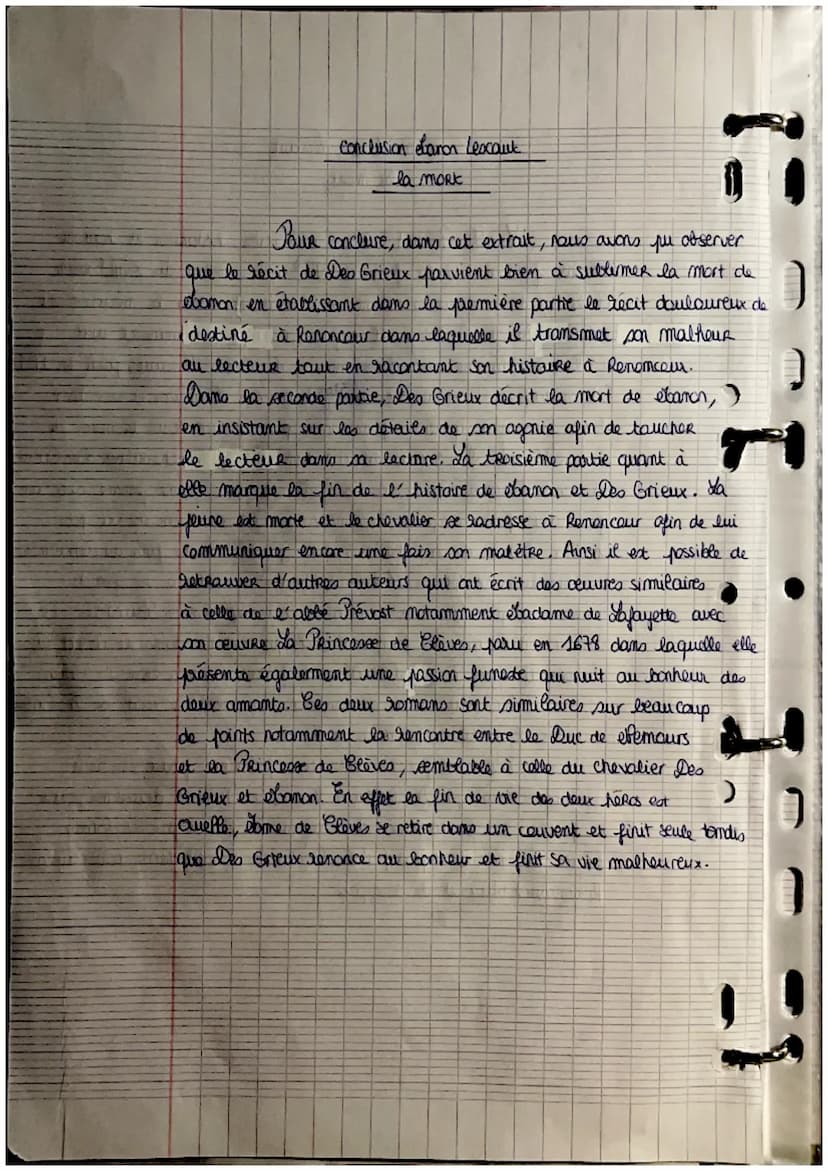 Conclusion Manon Lescaut
la mort
Pour conclure, dans cet extrait, nous avons pu observer
que le récit de Des Grieux parvient bien à sublimer la mort de
Manon en établissant dans la première partie le récit douloureux de
destiné à Renoncour dans laquelle il transmet son malheur
au lecteur tout en racontant son histoire à Renoncour.
Dans la seconde partie, Des Grieux décrit la mort de Manon,
en insistant sur les détails de son agonie afin de toucher
le lecteur dans sa lecture. La troisième partie quant à
elle marque la fin de l'histoire de Manon et Des Grieux. La
jeune est morte et le chevalier se radresse à Renoncour afin de lui
communiquer encore une fois son malêtre. Ainsi il est possible de
retrouver d'autres auteurs qui ont écrit des œuvres similaires
à celle de l'abbé Prévost notamment Madame de Lafayette avec
son œuvre La Princesse de Clèves, paru en 1678 dans laquelle elle
présente également une passion funeste qui nuit au bonheur des
deux amants. Ces deux romans sont similaires sur beaucoup
de points notamment la rencontre entre le Duc de Nemours
et la Princesse de Clèves, semblable à celle du chevalier Des
Grieux et Manon. En effet la fin de vie des deux héros est
cruelle, Mme de Clèves se retire dans un couvent et finit seule tandis
que Des Grieux renonce au bonheur et finit sa vie malheureux.